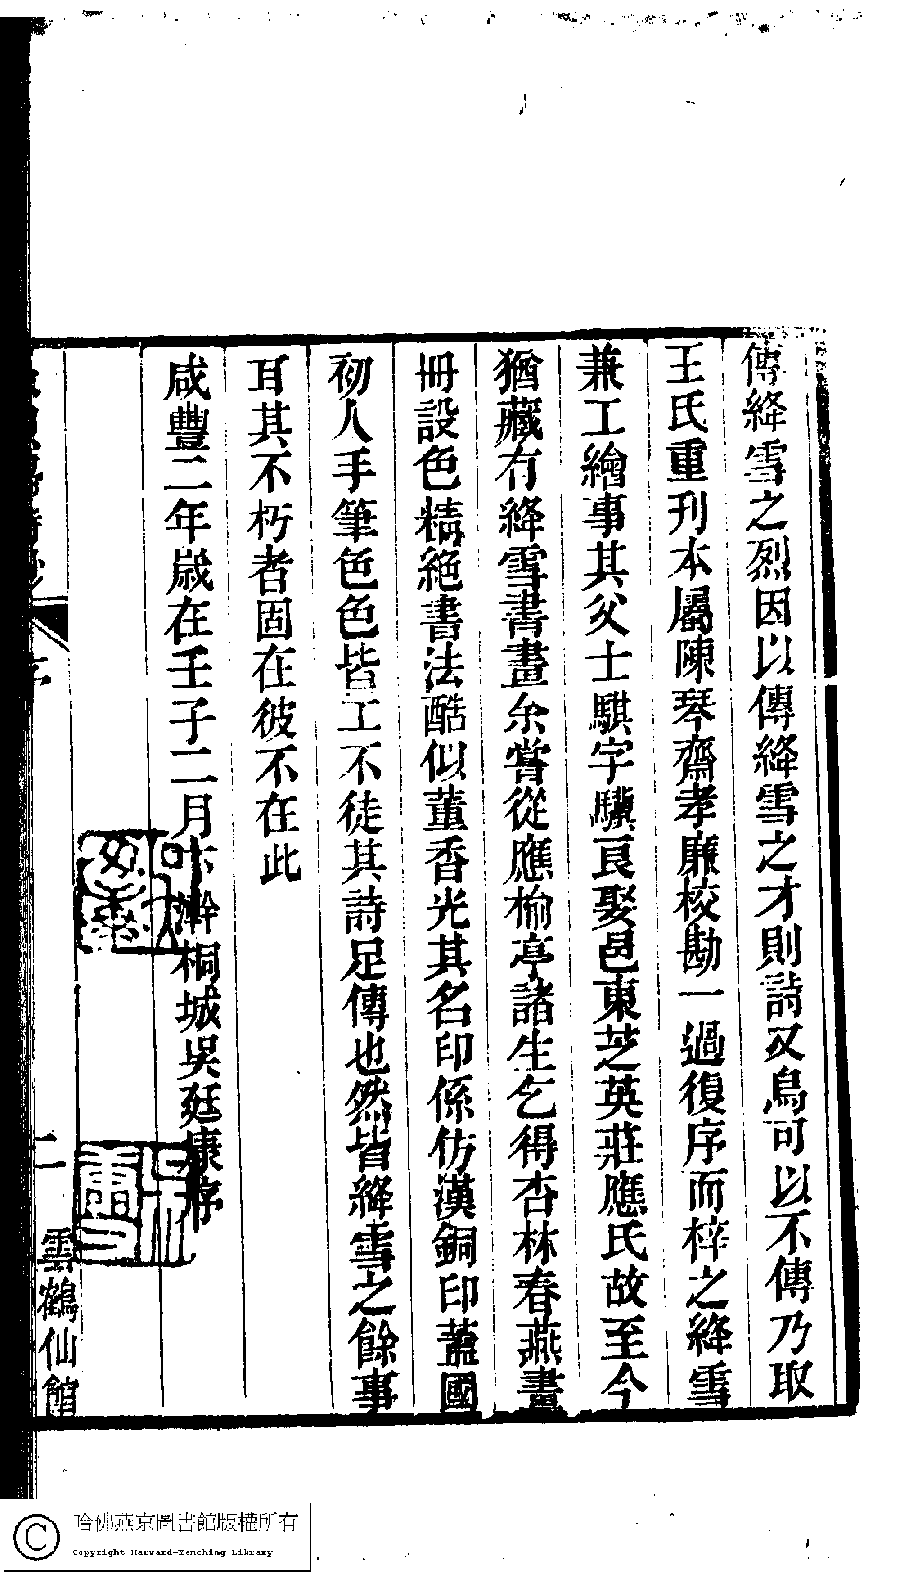 傳絳雪之烈因以傳絳雪之才則詩又烏可以不傳乃取
王氏重刊本屬陳琴齋孝廉校勘一過復序而梓之絳雪
兼工繪事其父士騏字驥良娶邑東芝英莊應氏故至今
猶藏有絳雪書畫余嘗從應榆亭諸生乞得杏林春燕畫
冊設色精絕書法酷似董香光其名印係仿漢銅印蓋國
初人手筆色色皆工不徒其詩足傳也然皆絳雪之餘事
耳其不朽者固在彼不在此
咸豐二年歲在壬子二月下澣桐城吳廷康序
二
雲鶴仙館
哈佛燕京圖書館版權所有
Copyright Harvard-Yenching Library